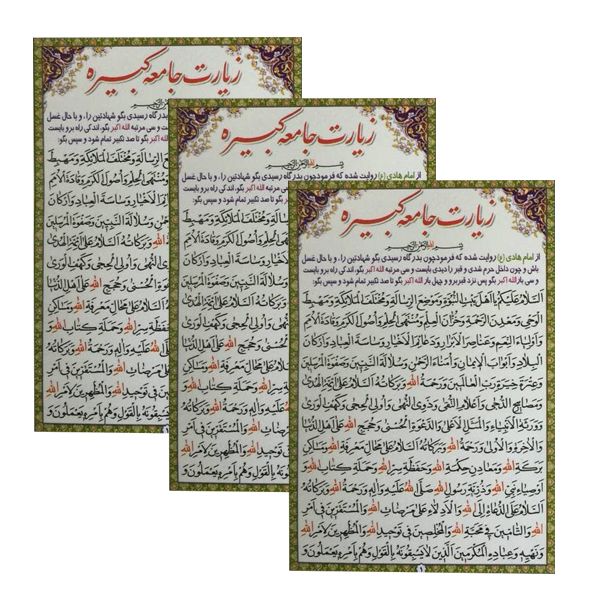 زیارت جامعه کبیره
زیارت جامعه کبیره
زیارت جامعه کبیره
بسم الله الرحمن الرحیم
از امام هادی (ع) روایت شده که فرمودچون بدرگاه رسیدی بگو شهادتین را، و با حال غسل
باش و چون داخل حرم شدی و قبر را دیدی بایست و سی مرتبه الله اکبر بگو، اندکی راه برو بایست
و سی بار الله اکبر بگو پس نزد قبر برو و چهل بار الله اکبر بگو تا صد تکبیر تمام شود و سپس بگو:
اَلسَّلامُ عَلَيْكُمْ يا اَهْلَ بَيْتِ النُّبُوَّةِ وَمَوْضِعَ الرِّسالَةِ وَمُخْتَلَفَ الْمَلائِكَةِ وَمَهْبِطَ
الْوَحْىِ وَمَعْدِنَ الرَّحْمَةِ وَخُزّانَ الْعِلْمِ وَمُنْتَهَى الْحِلْمِ وَاُصُولَ الْكَرَمِ وَقادَةَ الْاُمَمِ
وَاَوْلِياءَ النِّعَمِ وَعَناصِرَ الْاَبْرارِ وَدَعائِمَ الْاَخْيارِ وَساسَةَ الْعِبادِ وَاَرْكانَ
الْبِلادِ وَاَبْوابَ الْايمانِ وَاُمَناءَ الرَّحْمنِ وَسُلالَةَ النَّبِيّينَ وَصَفْوَةَ الْمُرْسَلينَ
وَعِتْرَةَ خِيَرَةِ رَبِّ الْعالَمينَ وَرَحْمَةُ اللهِ وَبَرَكاتُهُ اَلسَّلامُ عَلى اَئِمَّةِ الْهُدى
وَمَصابيحِ الدُّجى وَاَعْلامِ التُّقى وَذَوِى النُّهى وَاُولِى الْحِجى وَكَهْفِ الْوَرى
وَوَرَثَةِ الْاَنْبِياءِ وَالْمَثَلِ الْاَعْلى وَالدَّعْوَةِ الْحُسْنى وَحُجَجِ اللهِ عَلى اَهْلِ الدُّنْيا
وَالْاخِرَةِ وَالْاُولى وَرَحْمَةُ اللهِ وَبَرَكاتُهُ اَلسَّلامُ عَلى مَحالِّ مَعْرِفَةِ اللهِ وَمَساكِنِ
بَرَكَةِ اللهِ وَمَعادِنِ حِكْمَةِ اللهِ وَحَفَظَةِ سِرِّ اللهِ وَحَمَلَةِ كِتابِ اللهِ وَ
اَوْصِياءِ نَبِىِّ اللهِ وَذُرِّيَّةِ رَسُولِ اللهِ صَلَّى اللهُ عَلَيْهِ وَالِهِ وَرَحْمَةُ اللهِ وَبَرَكاتُهُ
اَلسَّلامُ عَلَى الدُّعاةِ اِلَى اللهِ وَالْاَدِلّاءِ عَلى مَرْضاتِ اللهِ وَالْمُسْتَقِرّينَ فى اَمْرِ
اللهِ وَالتّامّينَ فى مَحَبَّةِ اللهِ وَالْمُخْلِصينَ فى تَوْحيدِ اللهِ وَالْمُظْهِرينَ لِاَمْرِ اللهِ
وَنَهْيِهِ وَعِبادِهِ الْمُكْرَمينَ الَّذينَ لا يَسْبِقُونَهُ بِالْقَوْلِ وَهُمْ بِاَمْرِهِ يَعْمَلُونَ وَ
١